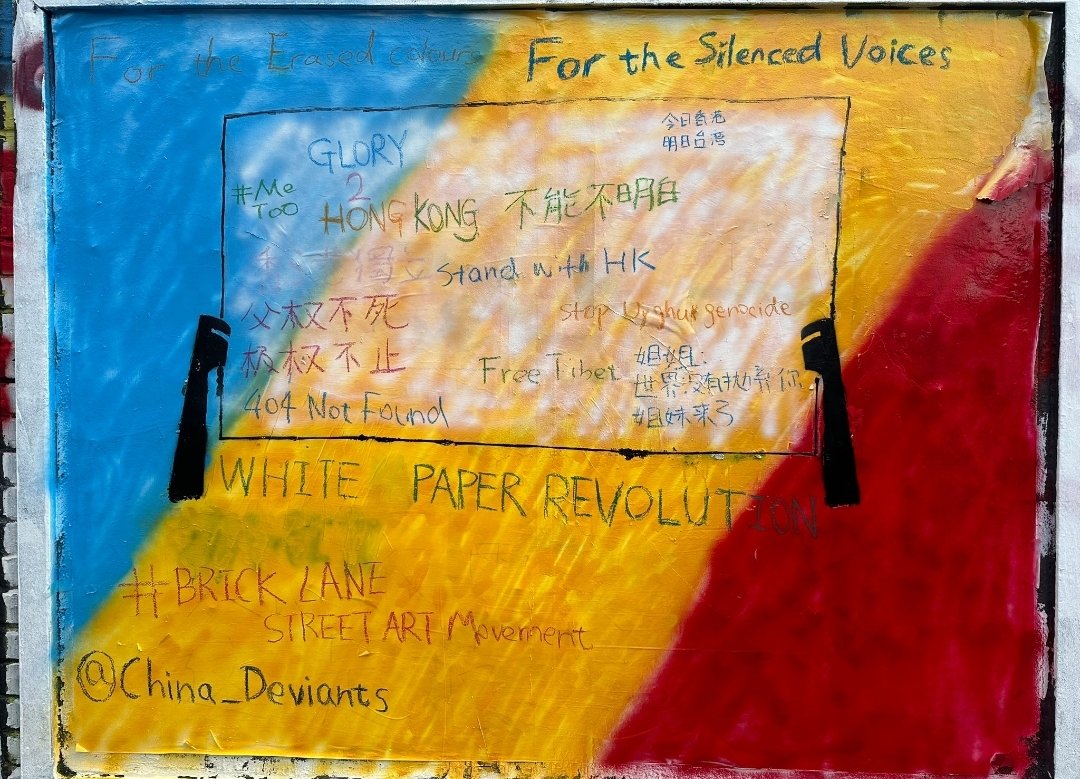 For the Erased colours
For the Silenced Voices
今日香港
明日台湾
GLORY
2
HONG KONG
#Me
Too
不能不明白
独立
Stand with HK
父权不死
极权不止
Stop Uyghur genocide
Free Tibet
404 Not Found
姐姐:
世界没有抛弃你
姐妹来了
WHITE PAPER REVOLUTION
#BRICK LANE
STREET ART Movement
@China_Deviants